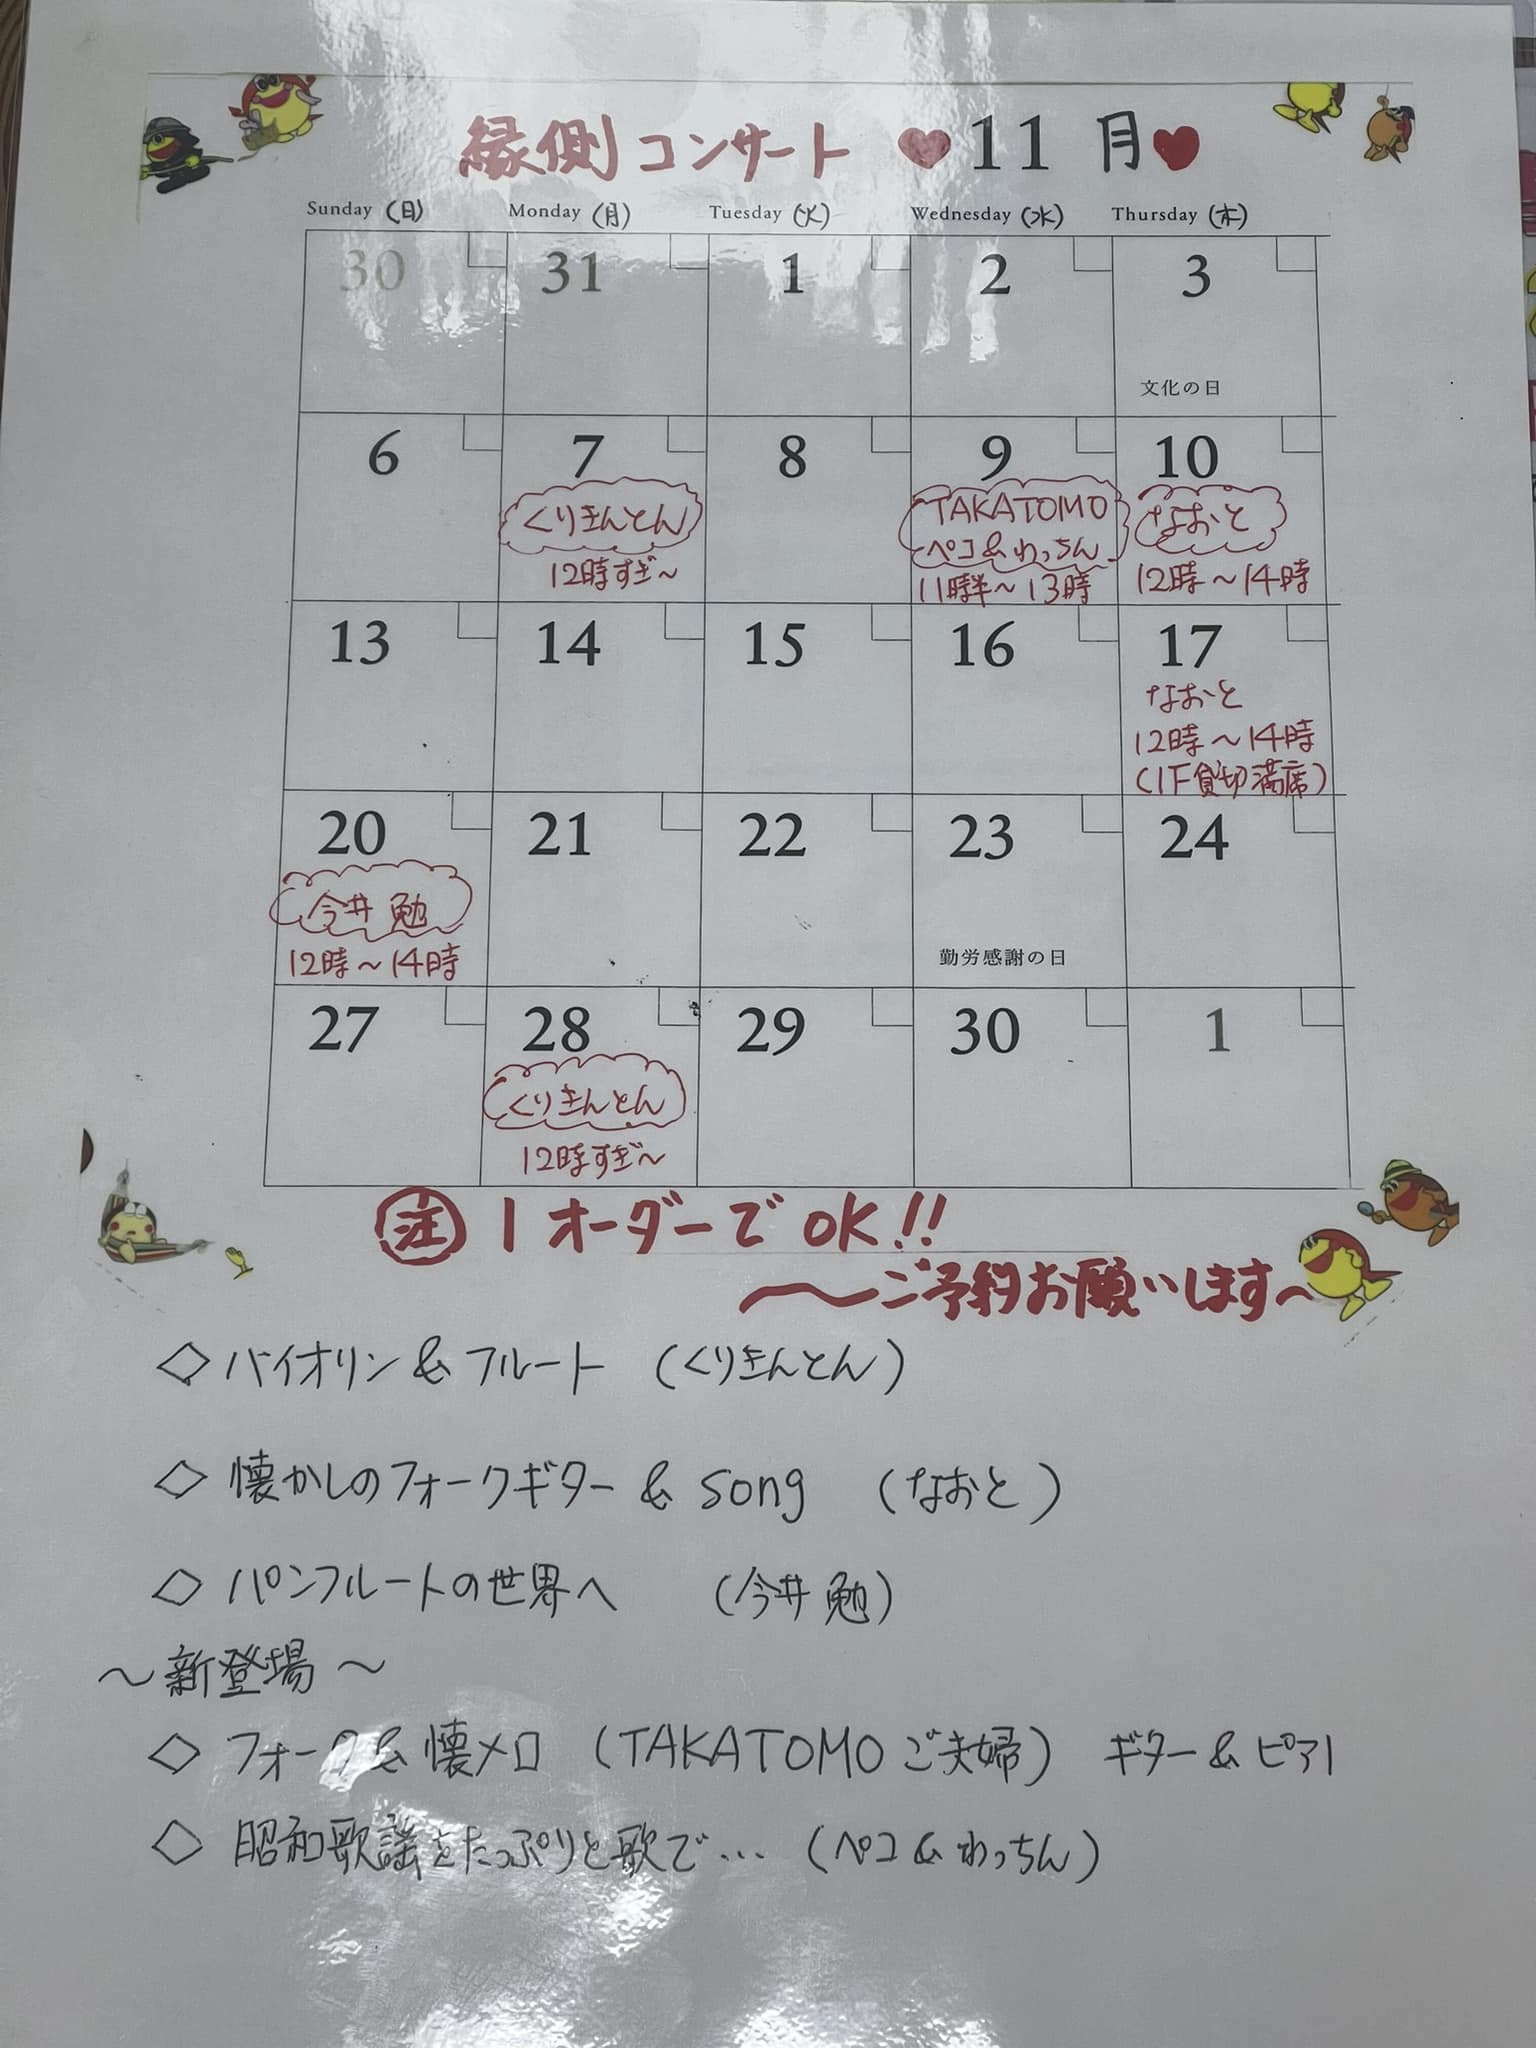 縁側コンサート ♥11月♥
Sunday (日) Monday (月) Tuesday (火) Wednesday (水) Thursday (木)
30 31 1 2 3
文化の日
6 7 8 9 10
くりきんとん
12時すぎ～
TAKATOMO
ペコ&わっちん
11時半～13時
なおと
12時～14時
13 14 15 16 17
なおと
12時～14時
(1F貸切満席)
20 21 22 23 24
今井 勉
12時～14時
勤労感謝の日
27 28 29 30 1
くりきんとん
12時すぎ～
㊟ 1オーダーでOK!!
～ご予約お願いします～
◇ バイオリン&フルート (くりきんとん)
◇ 懐かしのフォークギター & song (なおと)
◇ パンフルートの世界へ (今井 勉)
～新登場～
◇ フォーク&懐メロ (TAKATOMOご夫婦) ギター&ピアノ
◇ 昭和歌謡をたっぷりと歌で… (ペコ&わっちん)